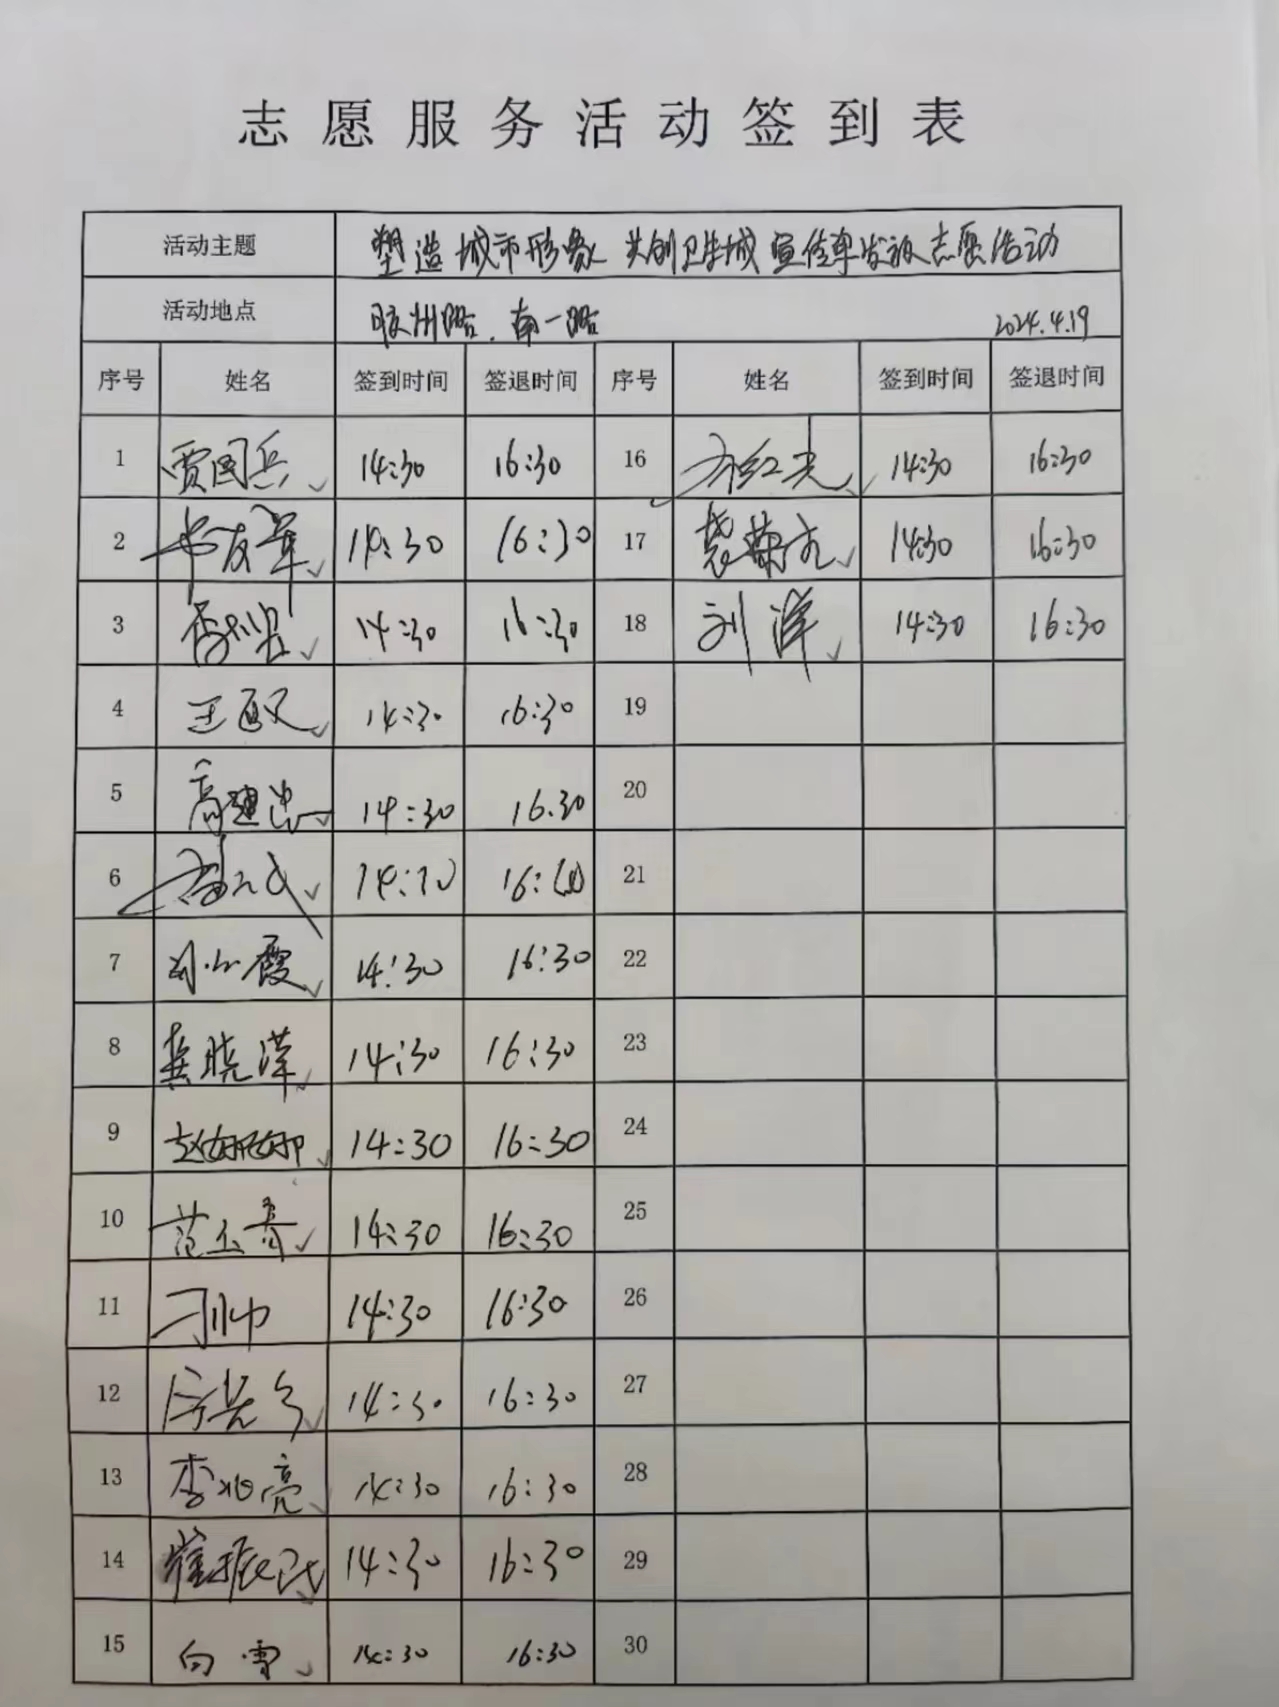 志愿服务活动签到表
活动主题 塑造城市形象 共创卫生城宣传单发放志愿活动
活动地点 胶州路、南一路 2024.4.19
序号 姓名 签到时间 签退时间 序号 姓名 签到时间 签退时间
1 贾国兵 14:30 16:30 16 14:30 16:30
2 14:30 16:30 17 14:30 16:30
3 14:30 16:30 18 刘洋 14:30 16:30
4 14:30 16:30 19
5 高建忠 14:30 16.30 20
6 21
7 刘小霞 14:30 16:30 22
8 龚晓洋 14:30 16:30 23
9 赵娜娜 14:30 16:30 24
10 范玉青 14:30 16:30 25
11 刁帅 14:30 16:30 26
12 14:30 16:30 27
13 李兆亮 14:30 16:30 28
14 崔振民 14:30 16:30 29
15 白雪 14:30 16:30 30